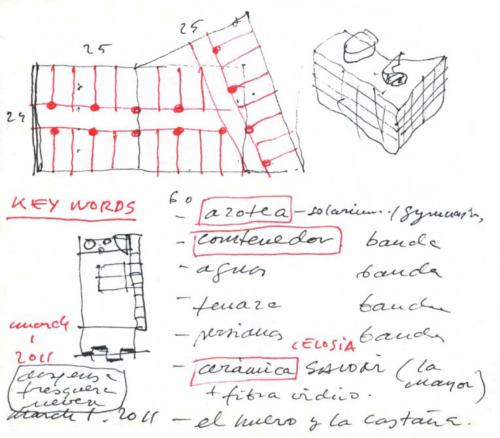 25
25
24
KEY WORDS
- azotea - solarium / gymnasio
- contenedor banda
- agua banda
- tenaza banda
- persianas banda
CELOSIA
- cerámica SALONI (la mayor)
+ fibra vidrio.
- el huevo y la castaña.
march
1
2011
despensa
fresquera
nevera
march 1. 2011